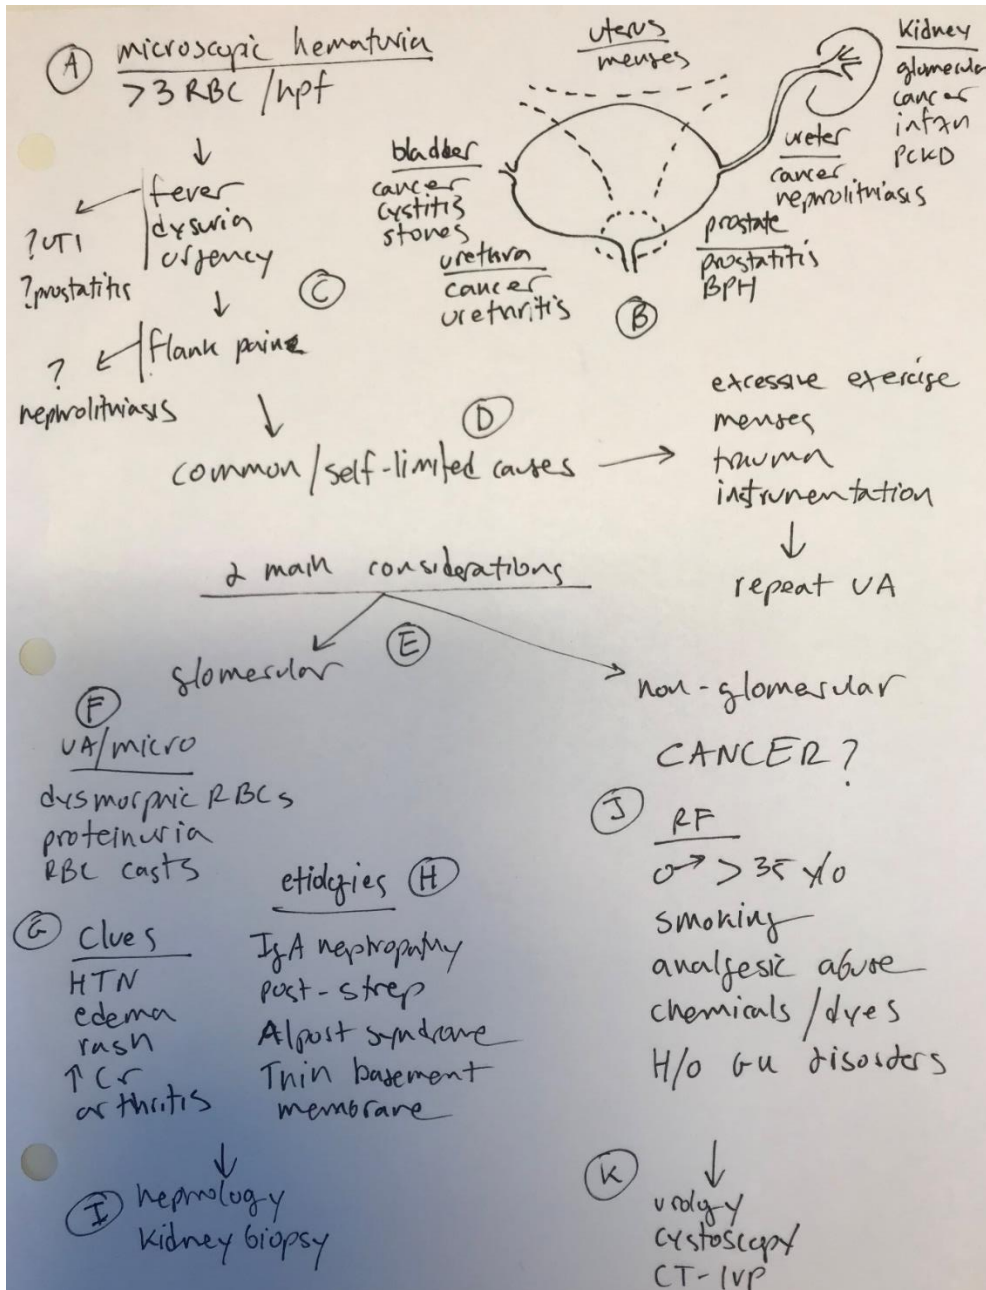 A microscopic hematuria
>3 RBC /hpf
↓
fever
dysuria
urgency
?UTI
?prostatitis
C
↓
flank pain
?
nephrolithiasis
uterus
menses
Kidney
glomerular
cancer
infxn
PCKD
ureter
cancer
nephrolithiasis
bladder
cancer
cystitis
stones
urethra
cancer
urethritis
prostate
prostatitis
BPH
B
D
common/self-limited causes →
excessive exercise
menses
trauma
instrumentation
↓
repeat UA
2 main considerations
E
glomerular
F
UA/micro
dysmorphic RBCs
proteinuria
RBC casts
G Clues
HTN
edema
rash
↑ Cr
arthritis
etiologies H
IgA nephropathy
post-strep
Alport syndrome
Thin basement
membrane
↓
I nephrology
kidney biopsy
non-glomerular
CANCER?
J RF
♂ > 35 y/o
smoking
analgesic abuse
chemicals/dyes
H/o GU disorders
↓
K urology
cystoscopy
CT-IVP